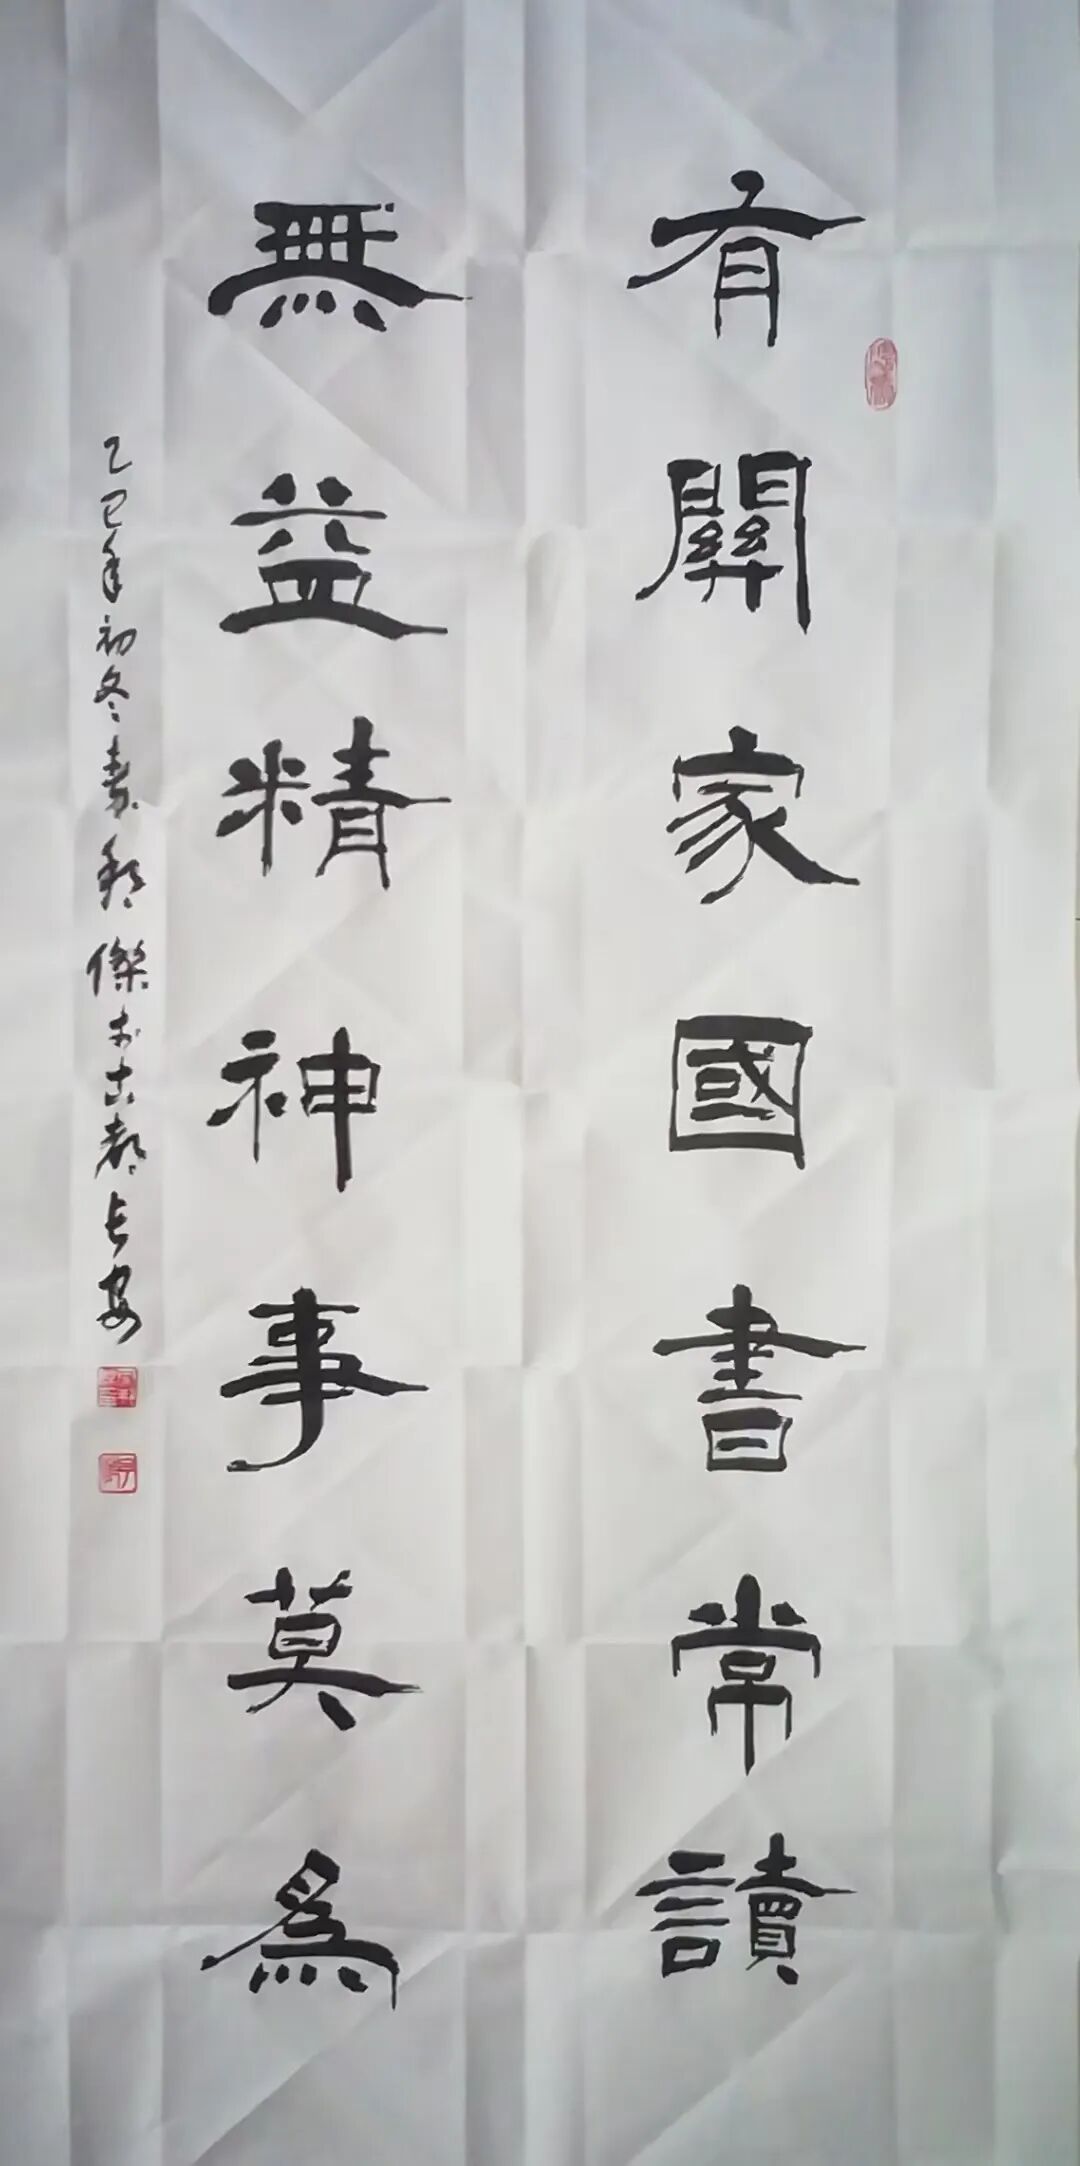 有關家國書常讀
無益精神事莫為
乙巳年初冬書 傑於古都長安